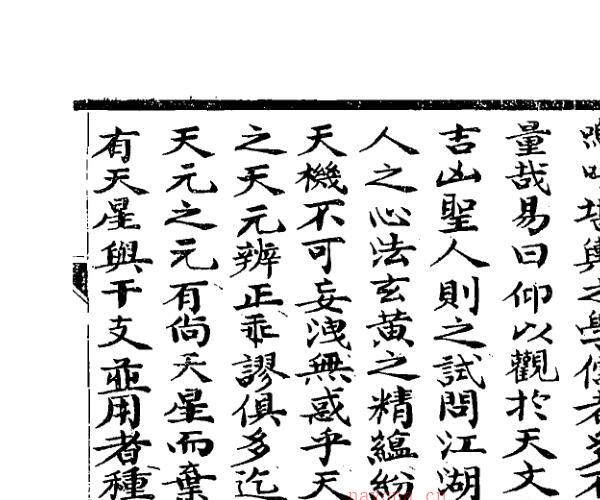 堪輿之學
量哉易曰仰以觀於天文
吉凶聖人則之試問江湖
人之心法玄黄之精蘊紛
天機不可妄洩無惑乎天
之天元辨正乖謬俱多迄
天元之元有尚天星而棄
有天星與干支並用者種